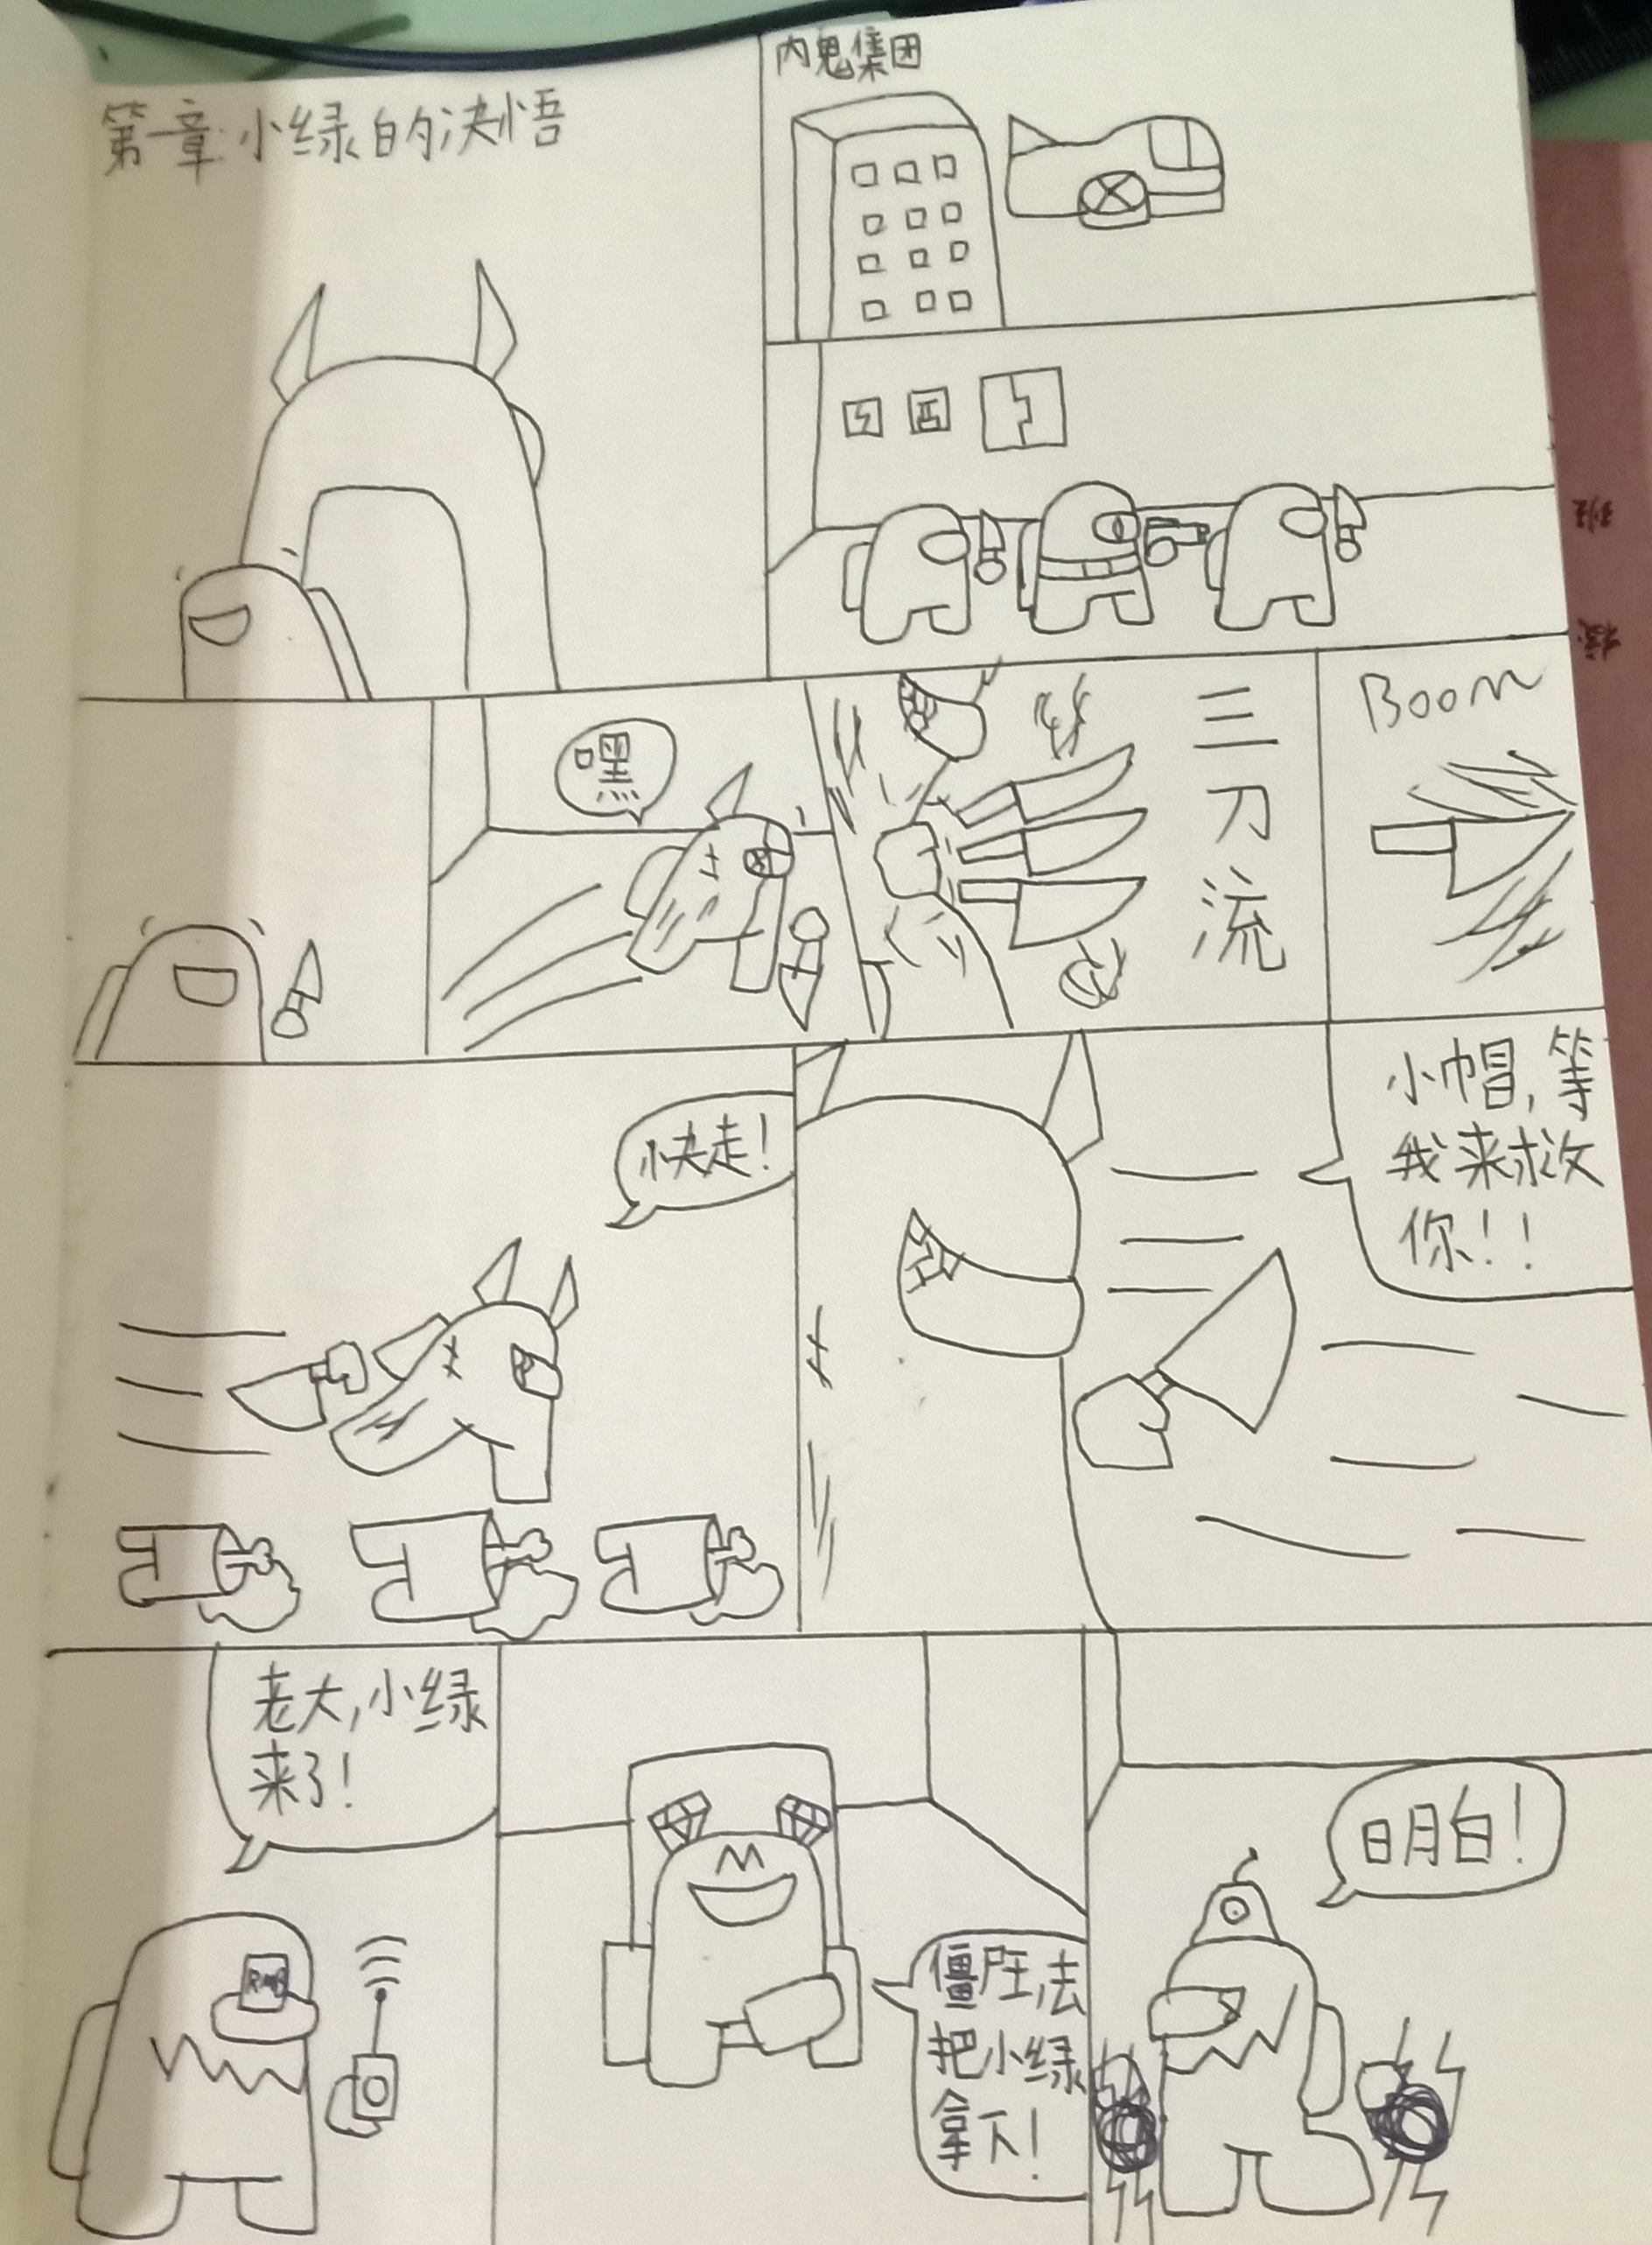 第一章:小绿的决悟
内鬼集团
嘿
三刀流
Boom
快走!
小帽,等
我来救
你!!
老大,小绿
来了!
RMB
M
僵尸王,去
把小绿
拿下!
明白!